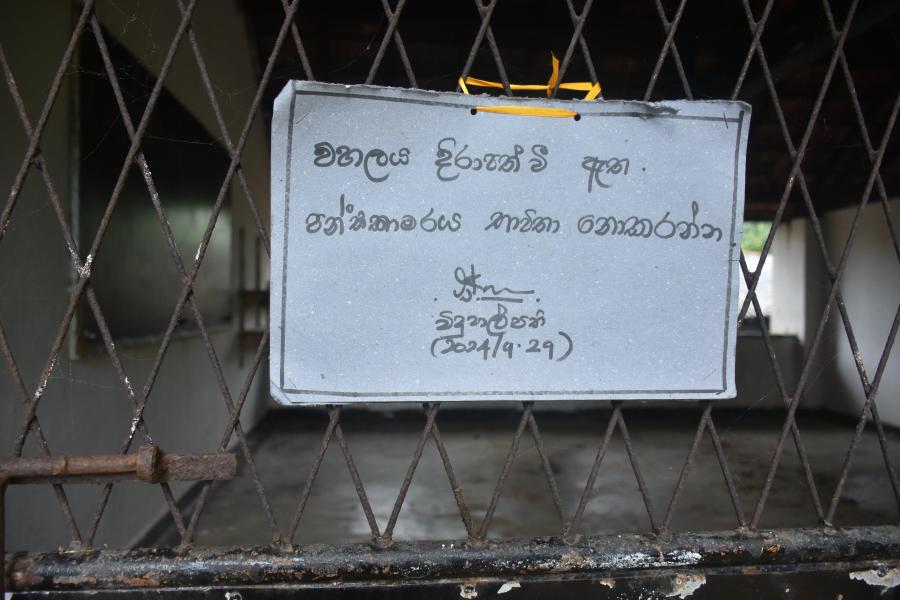 වහලය දිරාපත් වී ඇත.
පන්තිකාමරය භාවිතා නොකරන්න
විදුහල්පති
(2024/9.29)